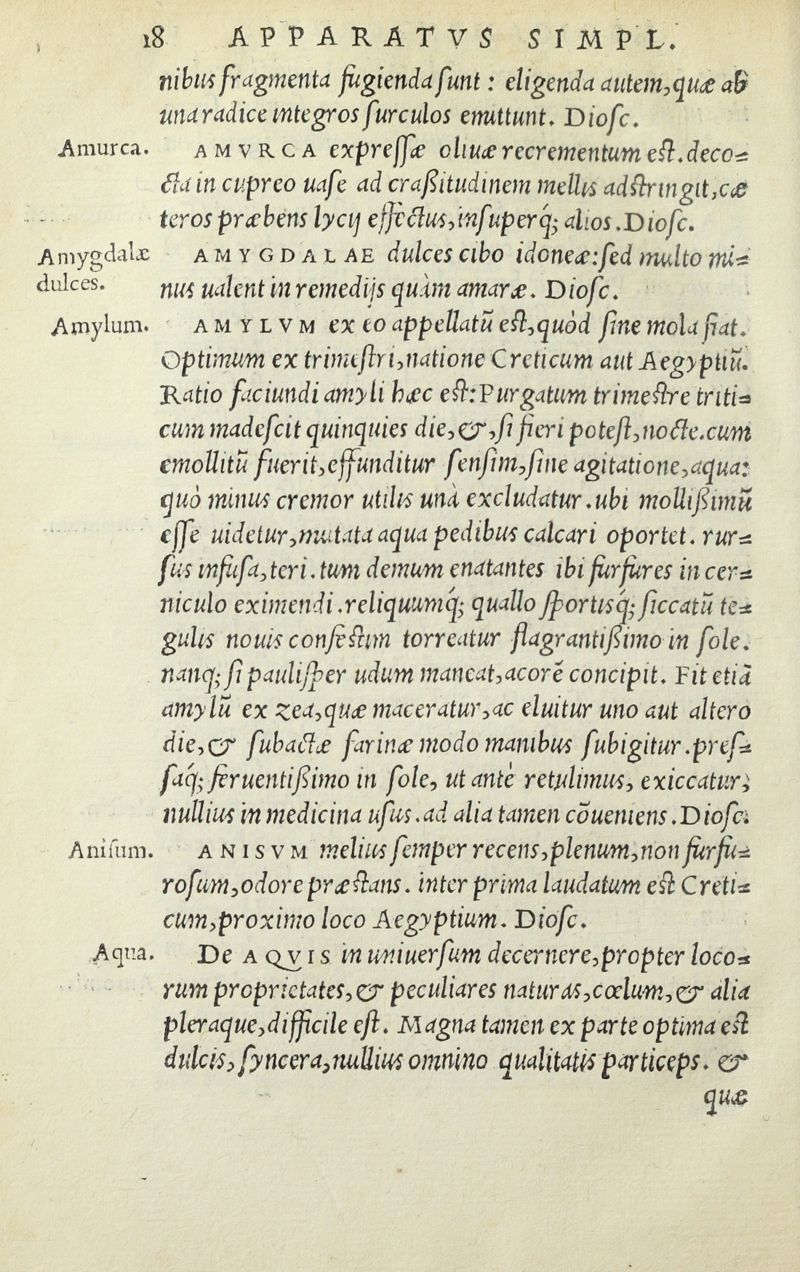 18 APPARATVS SIMPL.
nibus fragmenta fugienda sunt : eligenda autem, quæ ab
una radice integros surculos emittunt. Diosc.
Amurca. AMVRCA expressæ oliuæ recrementum est. deco-
cta in cupreo uase ad craßitudinem mellis adstringit, cæ
teros præbens lycij effectus, insuperq; alios. Diosc.
Amygdalæ dulces. AMYGDALAE dulces cibo idoneæ: sed multo mi-
nus ualent in remedijs quàm amaræ. Diosc.
Amylum. AMYLVM ex eo appellatū est, quòd sine mola fiat.
Optimum ex trimestri, natione Creticum aut Aegyptiū.
Ratio faciundi amyli hæc est: Purgatum trimestre triti-
cum madescit quinquies die, &, si fieri potest, nocte. cum
emollitū fuerit, effunditur sensim, sine agitatione, aqua:
quò minus cremor utilis unà excludatur. ubi mollißimū
esse uidetur, mutata aqua pedibus calcari oportet. rur-
sus infusa, teri. tum demum enatantes ibi furfures in cer-
niculo eximendi. reliquumq́; quallo sportisq́; siccatū te-
gulis nouis confestim torreatur flagrantißimo in sole.
nanq; si paulisper udum maneat, acorē concipit. Fit etiā
amylū ex zea, quæ maceratur, ac eluitur uno aut altero
die, & subactæ farinæ modo manibus subigitur. pres-
saq́; feruentißimo in sole, ut antè retulimus, exiccatur,
nullius in medicina usus. ad alia tamen cōueniens. Diosc.
Anisum. ANISVM melius semper recens, plenum, non furfu-
rosum, odore præstans. inter prima laudatum est Creti-
cum, proximo loco Aegyptium. Diosc.
Aqua. De AQVIS in uniuersum decernere, propter loco-
rum proprietates, & peculiares naturas, cœlum, & alia
pleraque, difficile est. Magna tamen ex parte optima est
dulcis, syncera, nullius omnino qualitatis particeps. &
quæ